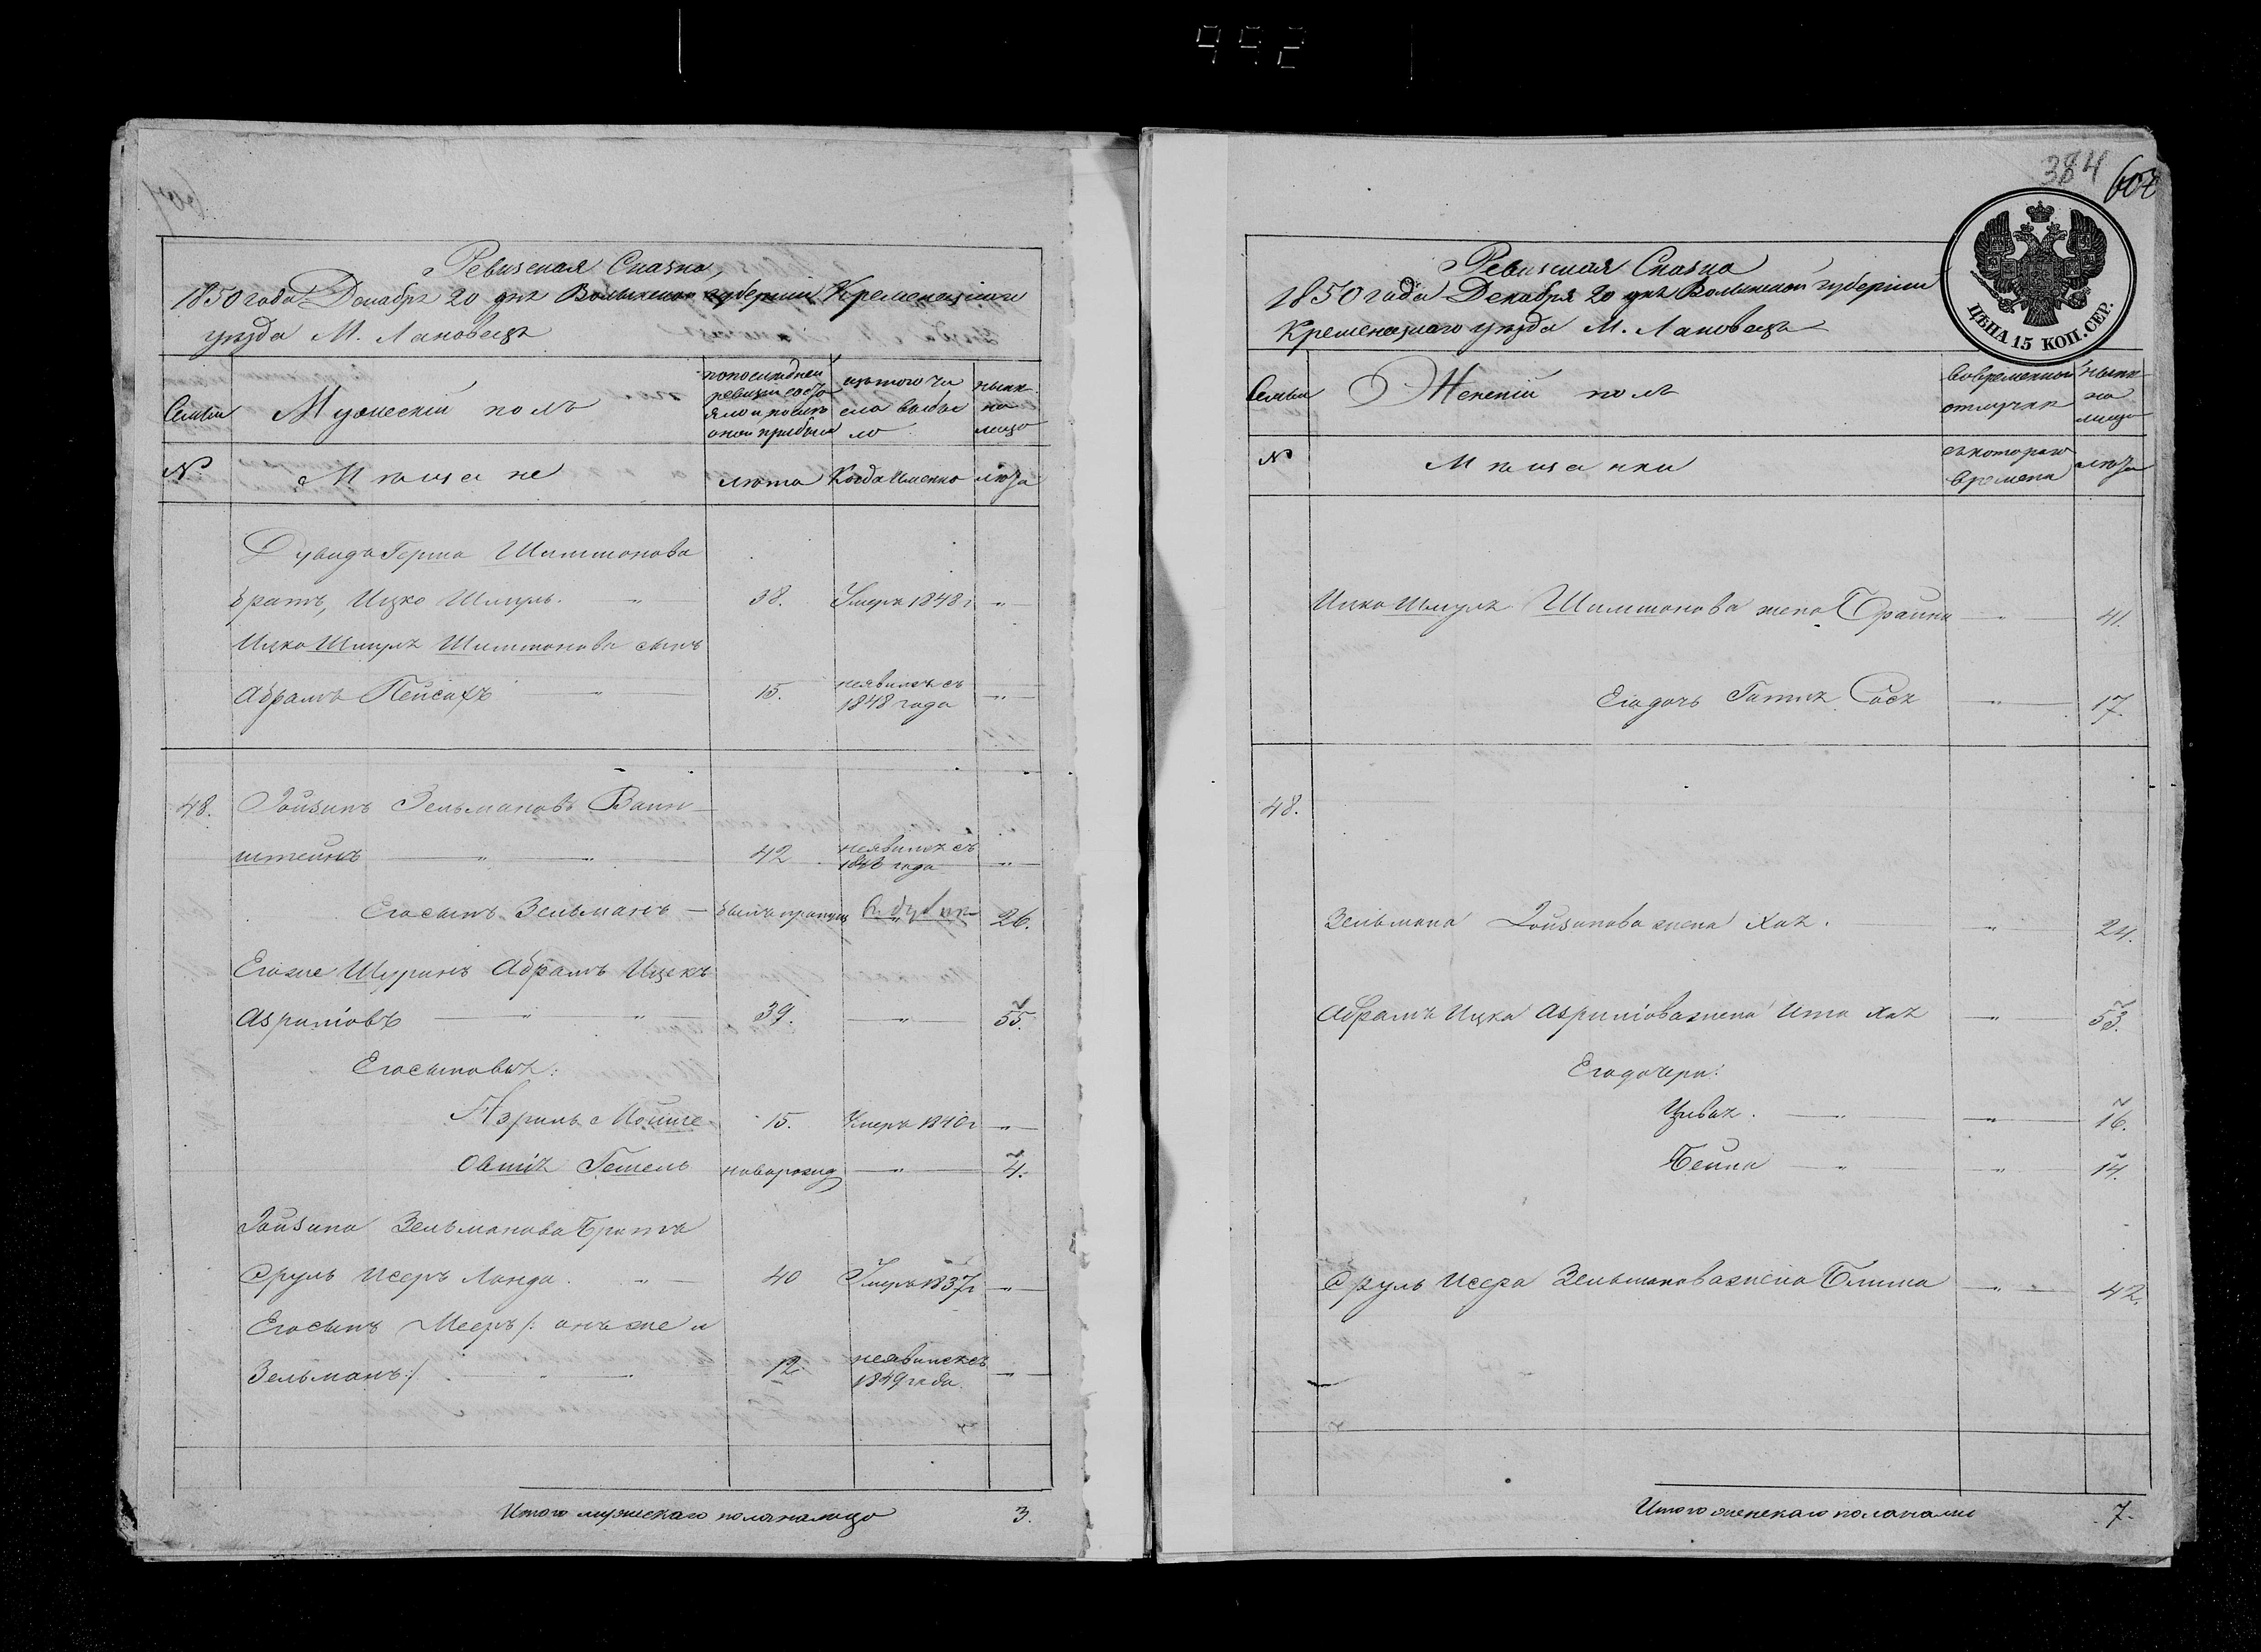 992
Ревизская Сказка,
1850 года Декабря 20 дня Волынской губернии Кременецкаго
уезда М. Лановецъ
Семьи
Мужескій полъ
по последней
ревизіи состо
яло и после
оной прибыло
изъ того чи
сла выбы
ло
ныне
на
лицо
№
Мещане
лета
Когда именно
лета
Дувидъ Герша Шимшонова
братъ, Ицко Шмуль
38.
Умеръ 1848 г
Ицка Шмуля Шимшонова сынъ
Абрамъ Пейсахъ
15.
неявился съ
1848 года
48.
Іойзипъ Зельмановъ Вайн-
штейнъ
42
неявился съ
года
Его сынъ Зельманъ
26.
Его же Шуринъ Абрамъ Ицекъ
Азриліовъ
39.
55.
Его сыновья:
Азриль Мойше
15.
Умеръ 1840 г
Овшія Гешель
новорожд
4.
Іойзипа Зельманова братъ
Сруль Исеръ Ланда
40
Умеръ 1837 г
Его сынъ Мееръ /: онъ же и
Зельманъ :/
12.
неявился съ
1849 года
Итого мужескаго пола налицо
3.
384
607
ЦѢНА 15 КОП. СЕР.
Ревизская Сказка
1850 года Декабря 20 дня Волынской губерніи
Кременецкаго уезда М. Лановецъ
Семьи
Женскій полъ
во временной
отлучке
ныне
на
лицо
№
Мещанки
съ котораго
времени
лета
Ицка Шмуля Шимшонова жена Брайна
41.
Его дочь Гитля Сося
17.
48.
Зельмана Іойзипова жена Хая.
24.
Абрамъ Ицка Азриліова жена Ита Хая
53.
Его дочери:
Цивья.
16.
Бейла
14.
Сруль Исера Зельманова жена Блима
42.
Итого женскаго пола налицо
7.